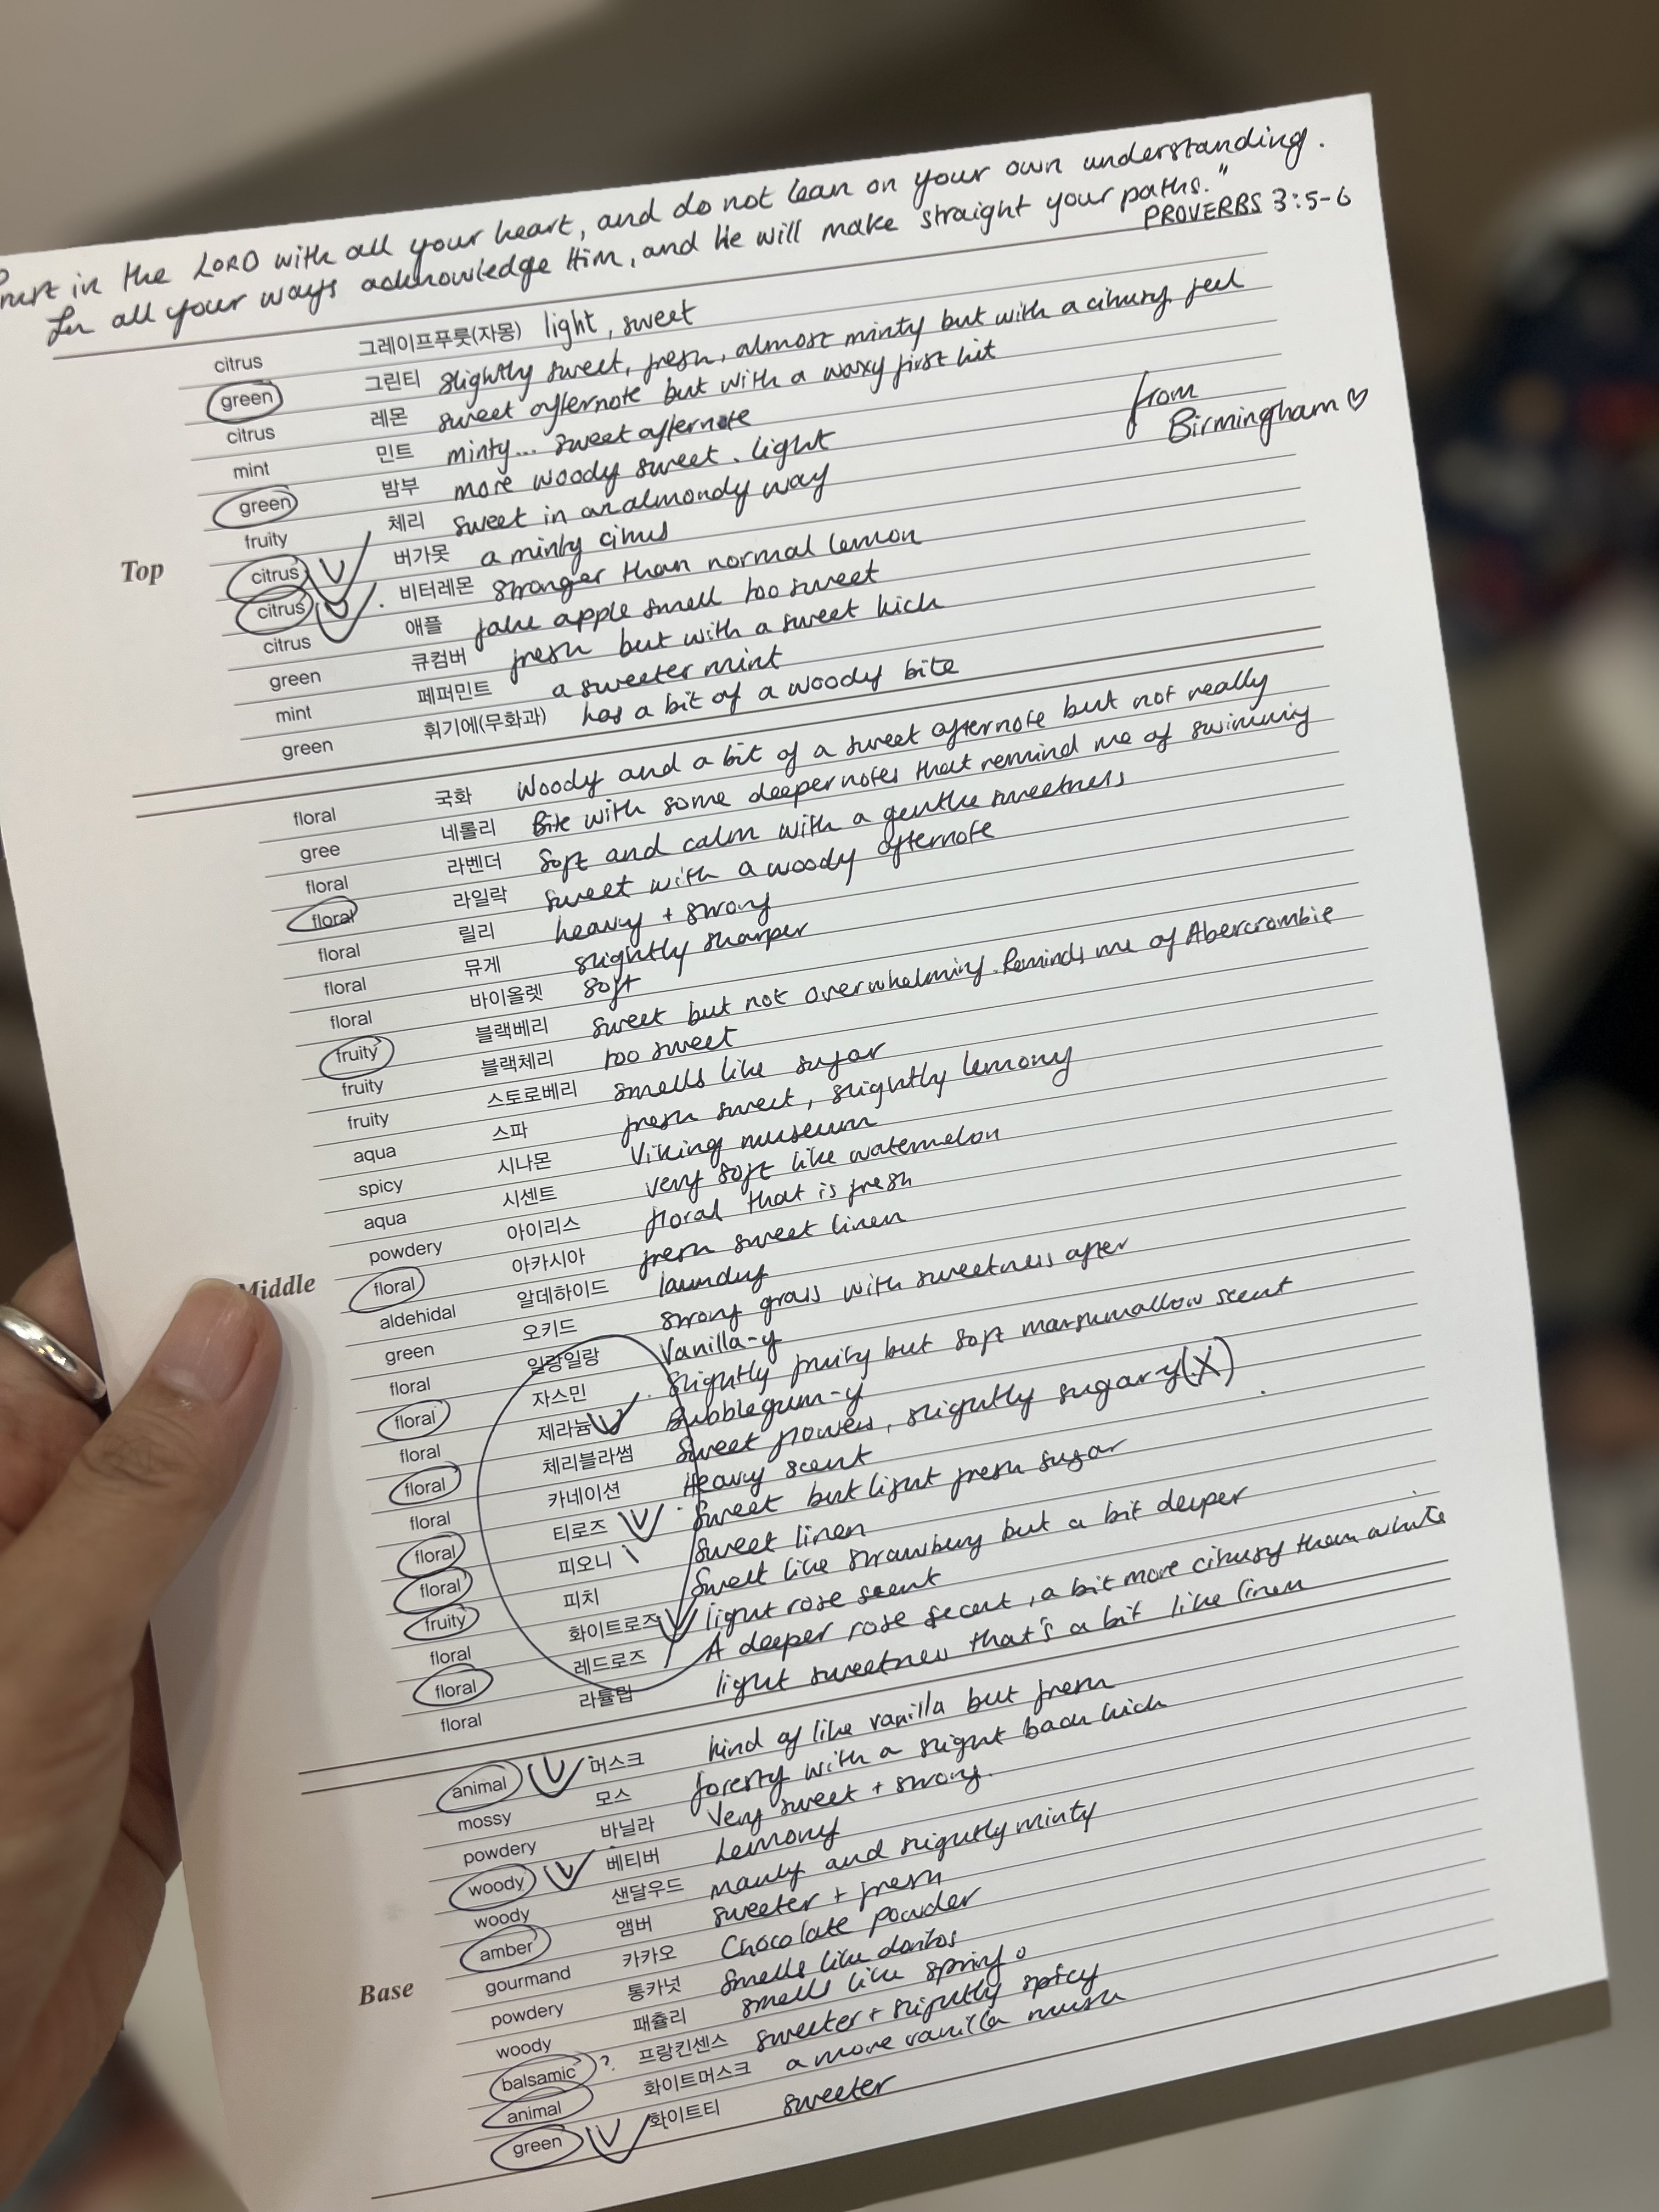 Trust in the LORD with all your heart, and do not lean on your own understanding.
In all your ways acknowledge Him, and He will make straight your paths."
PROVERBS 3:5-6
from
Birmingham ♡
Top
citrus 그레이프푸룻(자몽) light, sweet
green 그린티 slightly sweet, fresh, almost minty but with a citrusy feel
citrus 레몬 sweet afternote but with a waxy first hit
mint 민트 minty... sweet afternote
green 밤부 more woody sweet. light
fruity 체리 sweet in an almondy way
citrus 버가못 a minty citrus
citrus 비터레몬 stronger than normal lemon
citrus 애플 fake apple smell too sweet
green 큐컴버 fresh but with a sweet kick
mint 페퍼민트 a sweeter mint
green 휘기에(무화과) has a bit of a woody bite
Middle
floral 국화 Woody and a bit of a sweet afternote but not really
gree 네롤리 Bite with some deeper notes that remind me of swimming
floral 라벤더 Soft and calm with a gentle sweetness
floral 라일락 sweet with a woody afternote
floral 릴리 heavy + strong
floral 뮤게 slightly sharper
floral 바이올렛 soft
fruity 블랙베리 sweet but not overwhelming. Reminds me of Abercrombie
fruity 블랙체리 too sweet
fruity 스토로베리 smells like sugar
aqua 스파 fresh sweet, slightly lemony
spicy 시나몬 Viking museum
aqua 시센트 very soft like watermelon
powdery 아이리스 floral that is fresh
floral 아카시아 fresh sweet linen
aldehidal 알데하이드 laundry
green 오키드 strong grass with sweetness after
floral 일랑일랑 Vanilla-y
floral 자스민 slightly fruity but soft marsumallow scent
floral 제라늄 Bubblegum-y
floral 체리블라썸 Sweet flowers, slightly sugar-y (X)
floral 카네이션 Heavy scent
floral 티로즈 Sweet but light fresh sugar
floral 피오니 Sweet linen
fruity 피치 Sweet like strawberry but a bit deeper
floral 화이트로즈 light rose scent
floral 레드로즈 A deeper rose scent, a bit more citrusy than white
floral 라튤립 light sweetness that's a bit like linen
Base
animal 머스크 kind of like vanilla but fresh
mossy 모스 foresty with a slight back kick
powdery 바닐라 Very sweet + strong.
woody 베티버 Lemony
woody 샌달우드 manly and slightly minty
amber 앰버 sweeter + fresh
gourmand 카카오 Chocolate powder
powdery 통카넛 smells like doritos
woody 패츌리 smells like spring
balsamic ? 프랑킨센스 sweeter + slightly spicy
animal 화이트머스크 a more vanilla musk
green 화이트티 sweeter